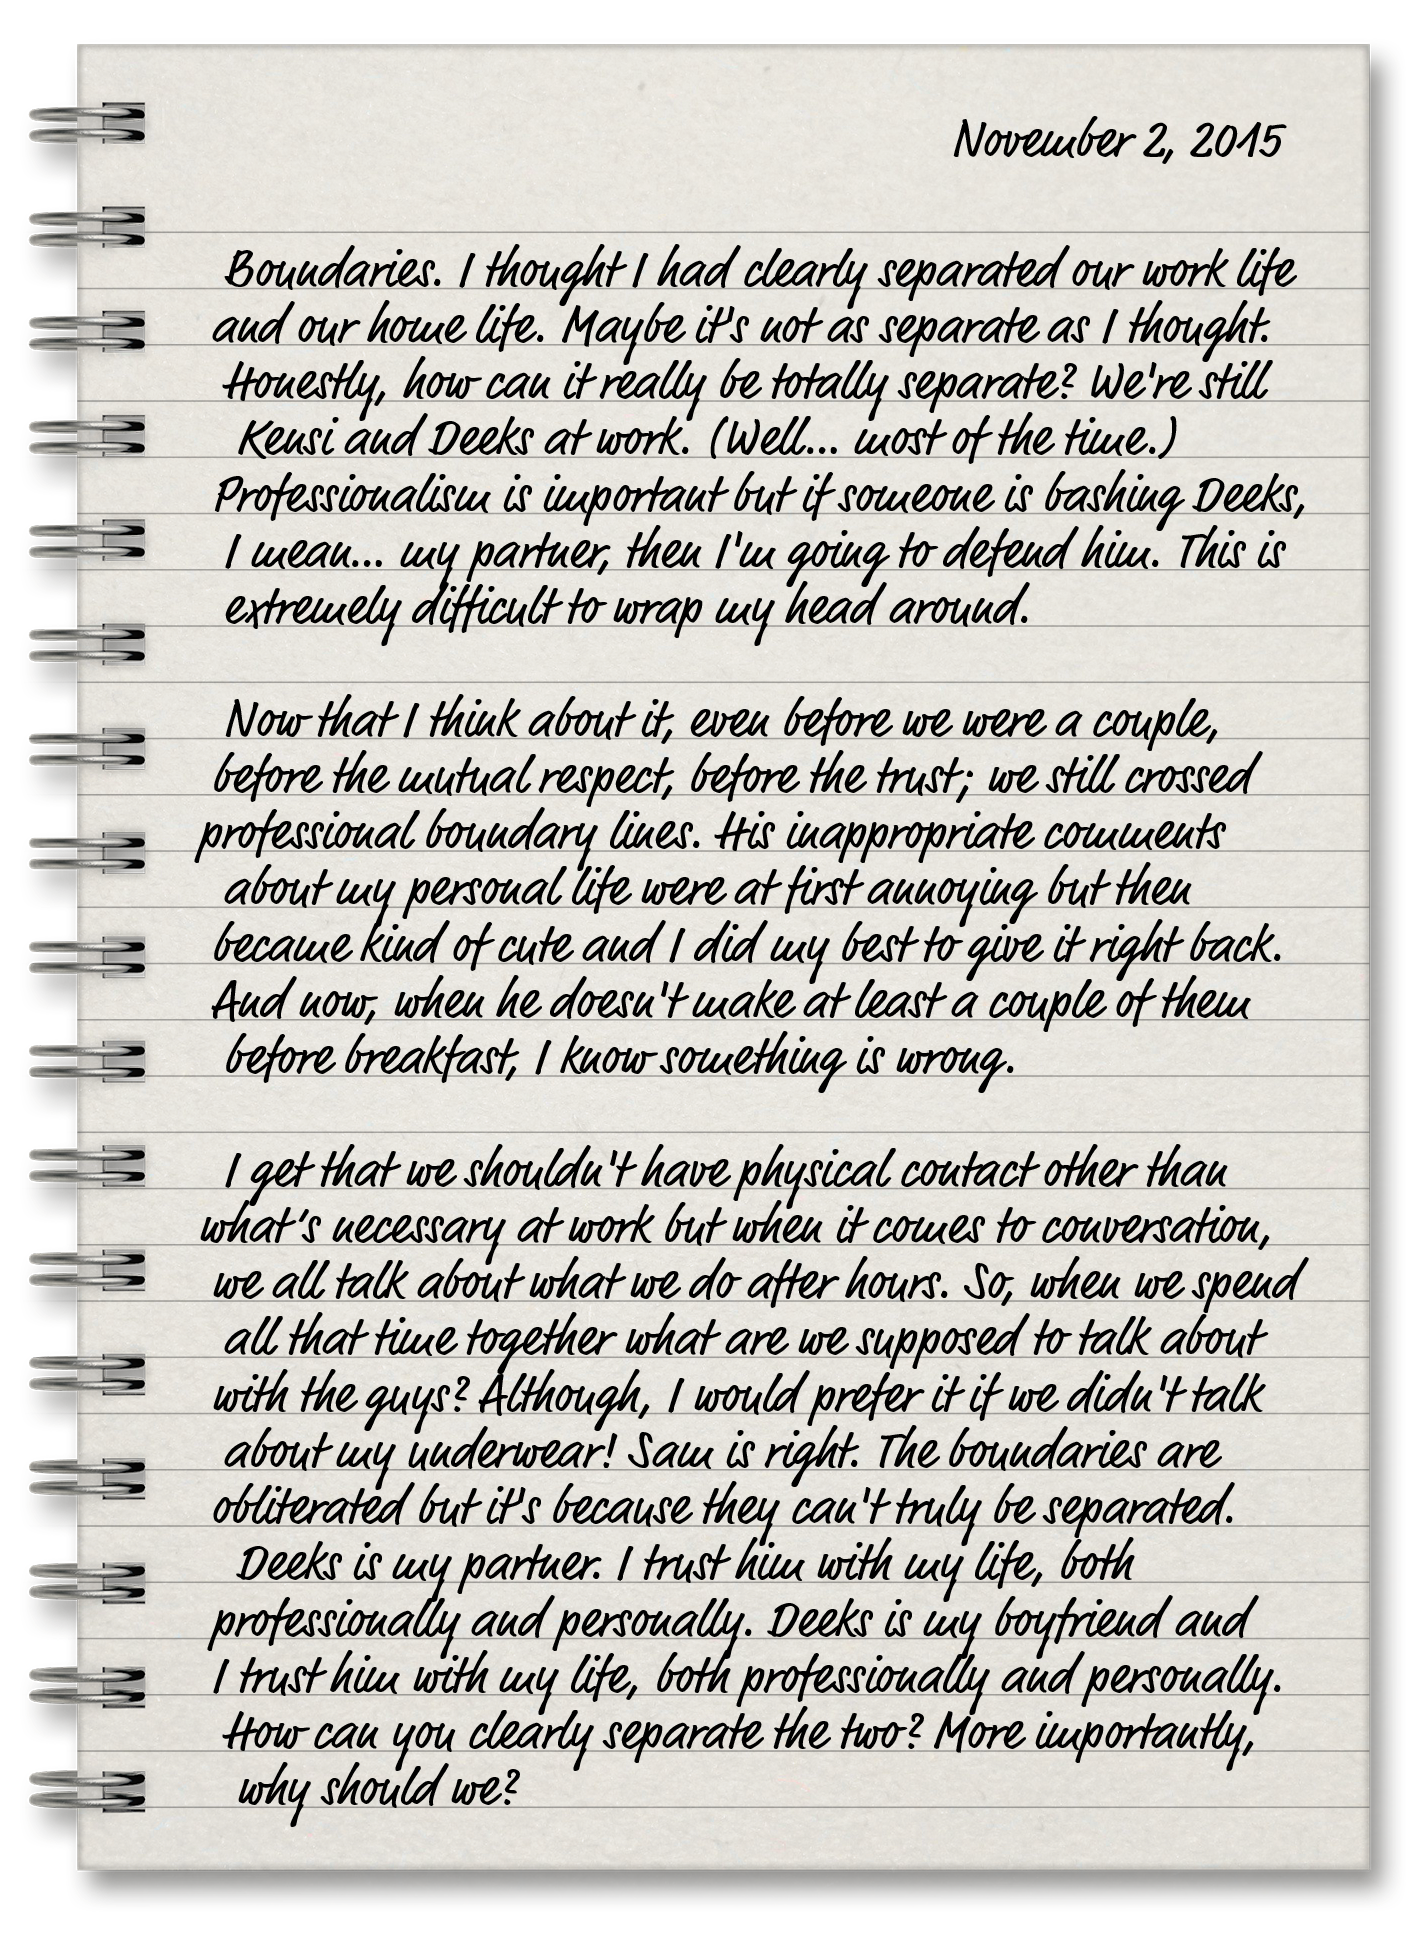 November 2, 2015
Boundaries. I thought I had clearly separated our work life
and our home life. Maybe it's not as separate as I thought.
Honestly, how can it really be totally separate? We're still
Kensi and Deeks at work. (Well... most of the time.)
Professionalism is important but if someone is bashing Deeks,
I mean... my partner, then I'm going to defend him. This is
extremely difficult to wrap my head around.
Now that I think about it, even before we were a couple,
before the mutual respect, before the trust; we still crossed
professional boundary lines. His inappropriate comments
about my personal life were at first annoying but then
became kind of cute and I did my best to give it right back.
And now, when he doesn't make at least a couple of them
before breakfast, I know something is wrong.
I get that we shouldn't have physical contact other than
what's necessary at work but when it comes to conversation,
we all talk about what we do after hours. So, when we spend
all that time together what are we supposed to talk about
with the guys? Although, I would prefer it if we didn't talk
about my underwear! Sam is right. The boundaries are
obliterated but it's because they can't truly be separated.
Deeks is my partner. I trust him with my life, both
professionally and personally. Deeks is my boyfriend and
I trust him with my life, both professionally and personally.
How can you clearly separate the two? More importantly,
why should we?